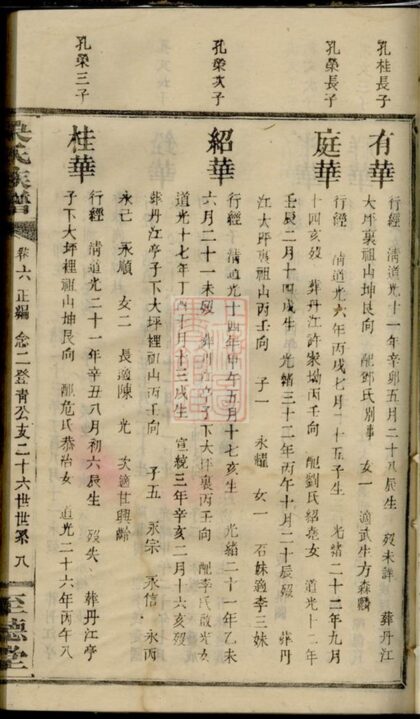 孔桂長子
有華
行經　清道光十一年辛卯五月二十八辰生　歿未詳　葬丹江
大坪裏祖山坤艮向　配鄧氏别事　女一　適武生方森麟
孔榮長子
庭華
行經　清道光六年丙戌七月二十五子生　光緒二十二年九月
十四亥歿　葬丹江許家坳丙壬向　配劉氏紹堯女　道光十二年
壬辰二月十四戌生　光緒三十二年丙午十月二十辰歿　葬丹
江大坪裏祖山丙壬向　子一　永耀　女一　石妹適李三妹
孔榮次子
紹華
行經　清道光十四年甲午五月十七亥生　光緒二十一年乙未
六月二十一未歿　葬丹江亭子下大坪裏丙壬向　配李氏啟光女
道光十七年丁酉十月十三戌生　宣統三年辛亥二月十六亥歿
葬丹江亭子下大坪裡祖山丙壬向　子五　永宗　永信　永丙
永己　永順　女二　長適陳　光　次適甘興齡
孔榮三子
桂華
行經　清道光二十一年辛丑八月初六辰生　歿失　葬丹江亭
子下大坪裡祖山坤艮向　配危氏恭治女　道光二十六年丙午八
氏族譜
卷六　正編　念二登青公支二十六世世系　八
至德堂